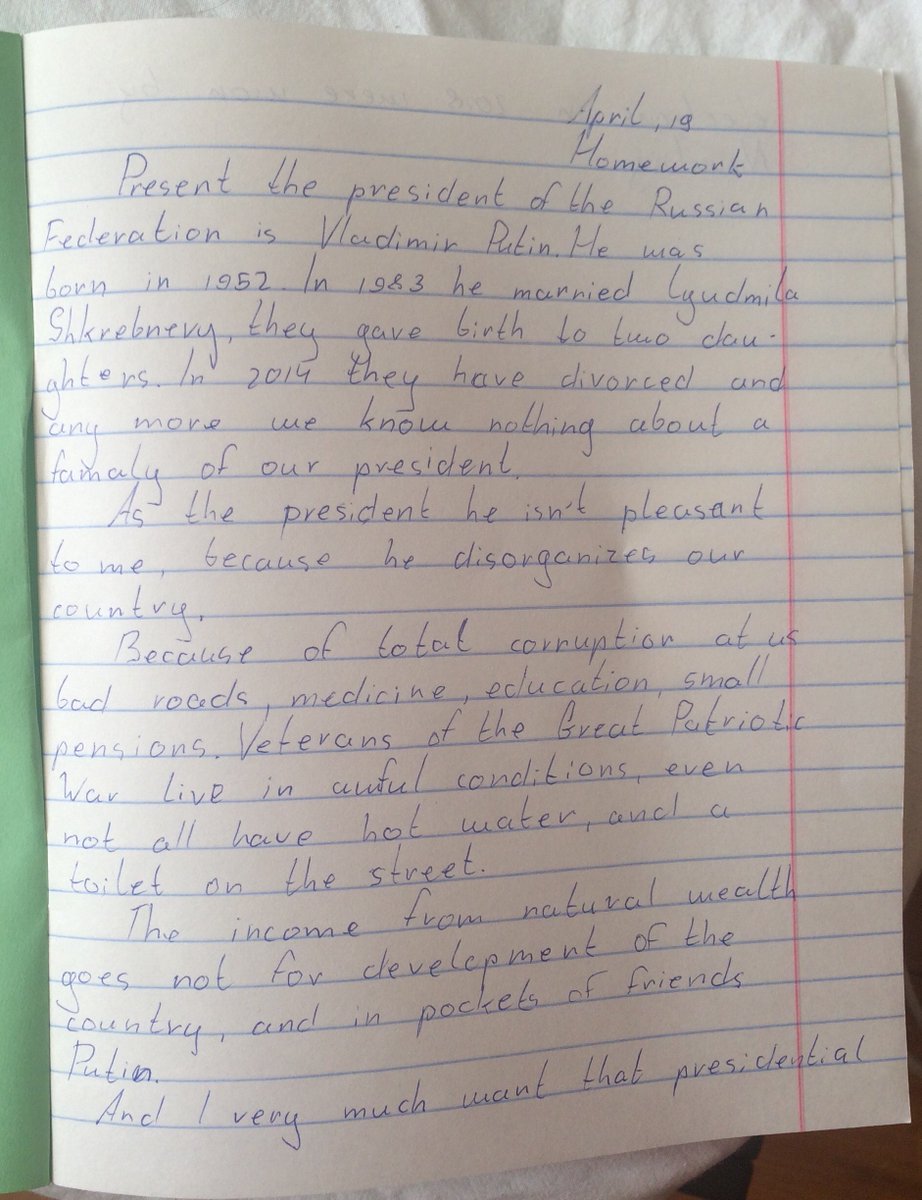 April, 19
Homework
Present the president of the Russian
Federation is Vladimir Putin. He was
born in 1952. In 1983 he married Lyudmila
Shkrebnevy, they gave birth to two dau-
ghters. In 2014 they have divorced and
any more we know nothing about a
famaly of our president.
As the president he isn't pleasant
to me, because he disorganizes our
country.
Because of total corruption at us
bad roads, medicine, education, small
pensions. Veterans of the Great Patriotic
War live in awful conditions, even
not all have hot water, and a
toilet on the street.
The income from natural wealth
goes not for development of the
country, and in pockets of friends
Putin.
And I very much want that presidential